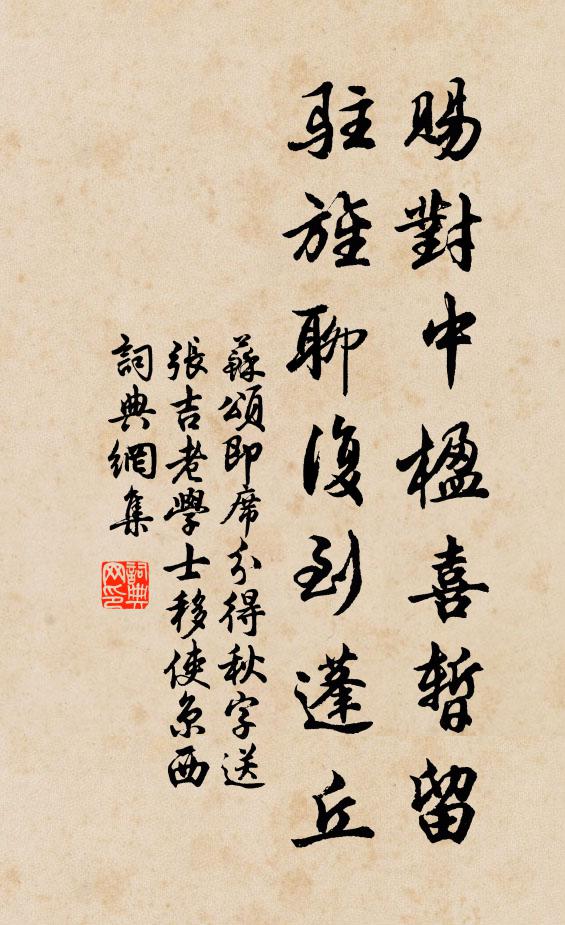 賜對中楹喜暫留
駐旌聊復到蓬丘
蘇頌即席分得秋字送
張吉老學士移使京西
詞典網集
詞典網印